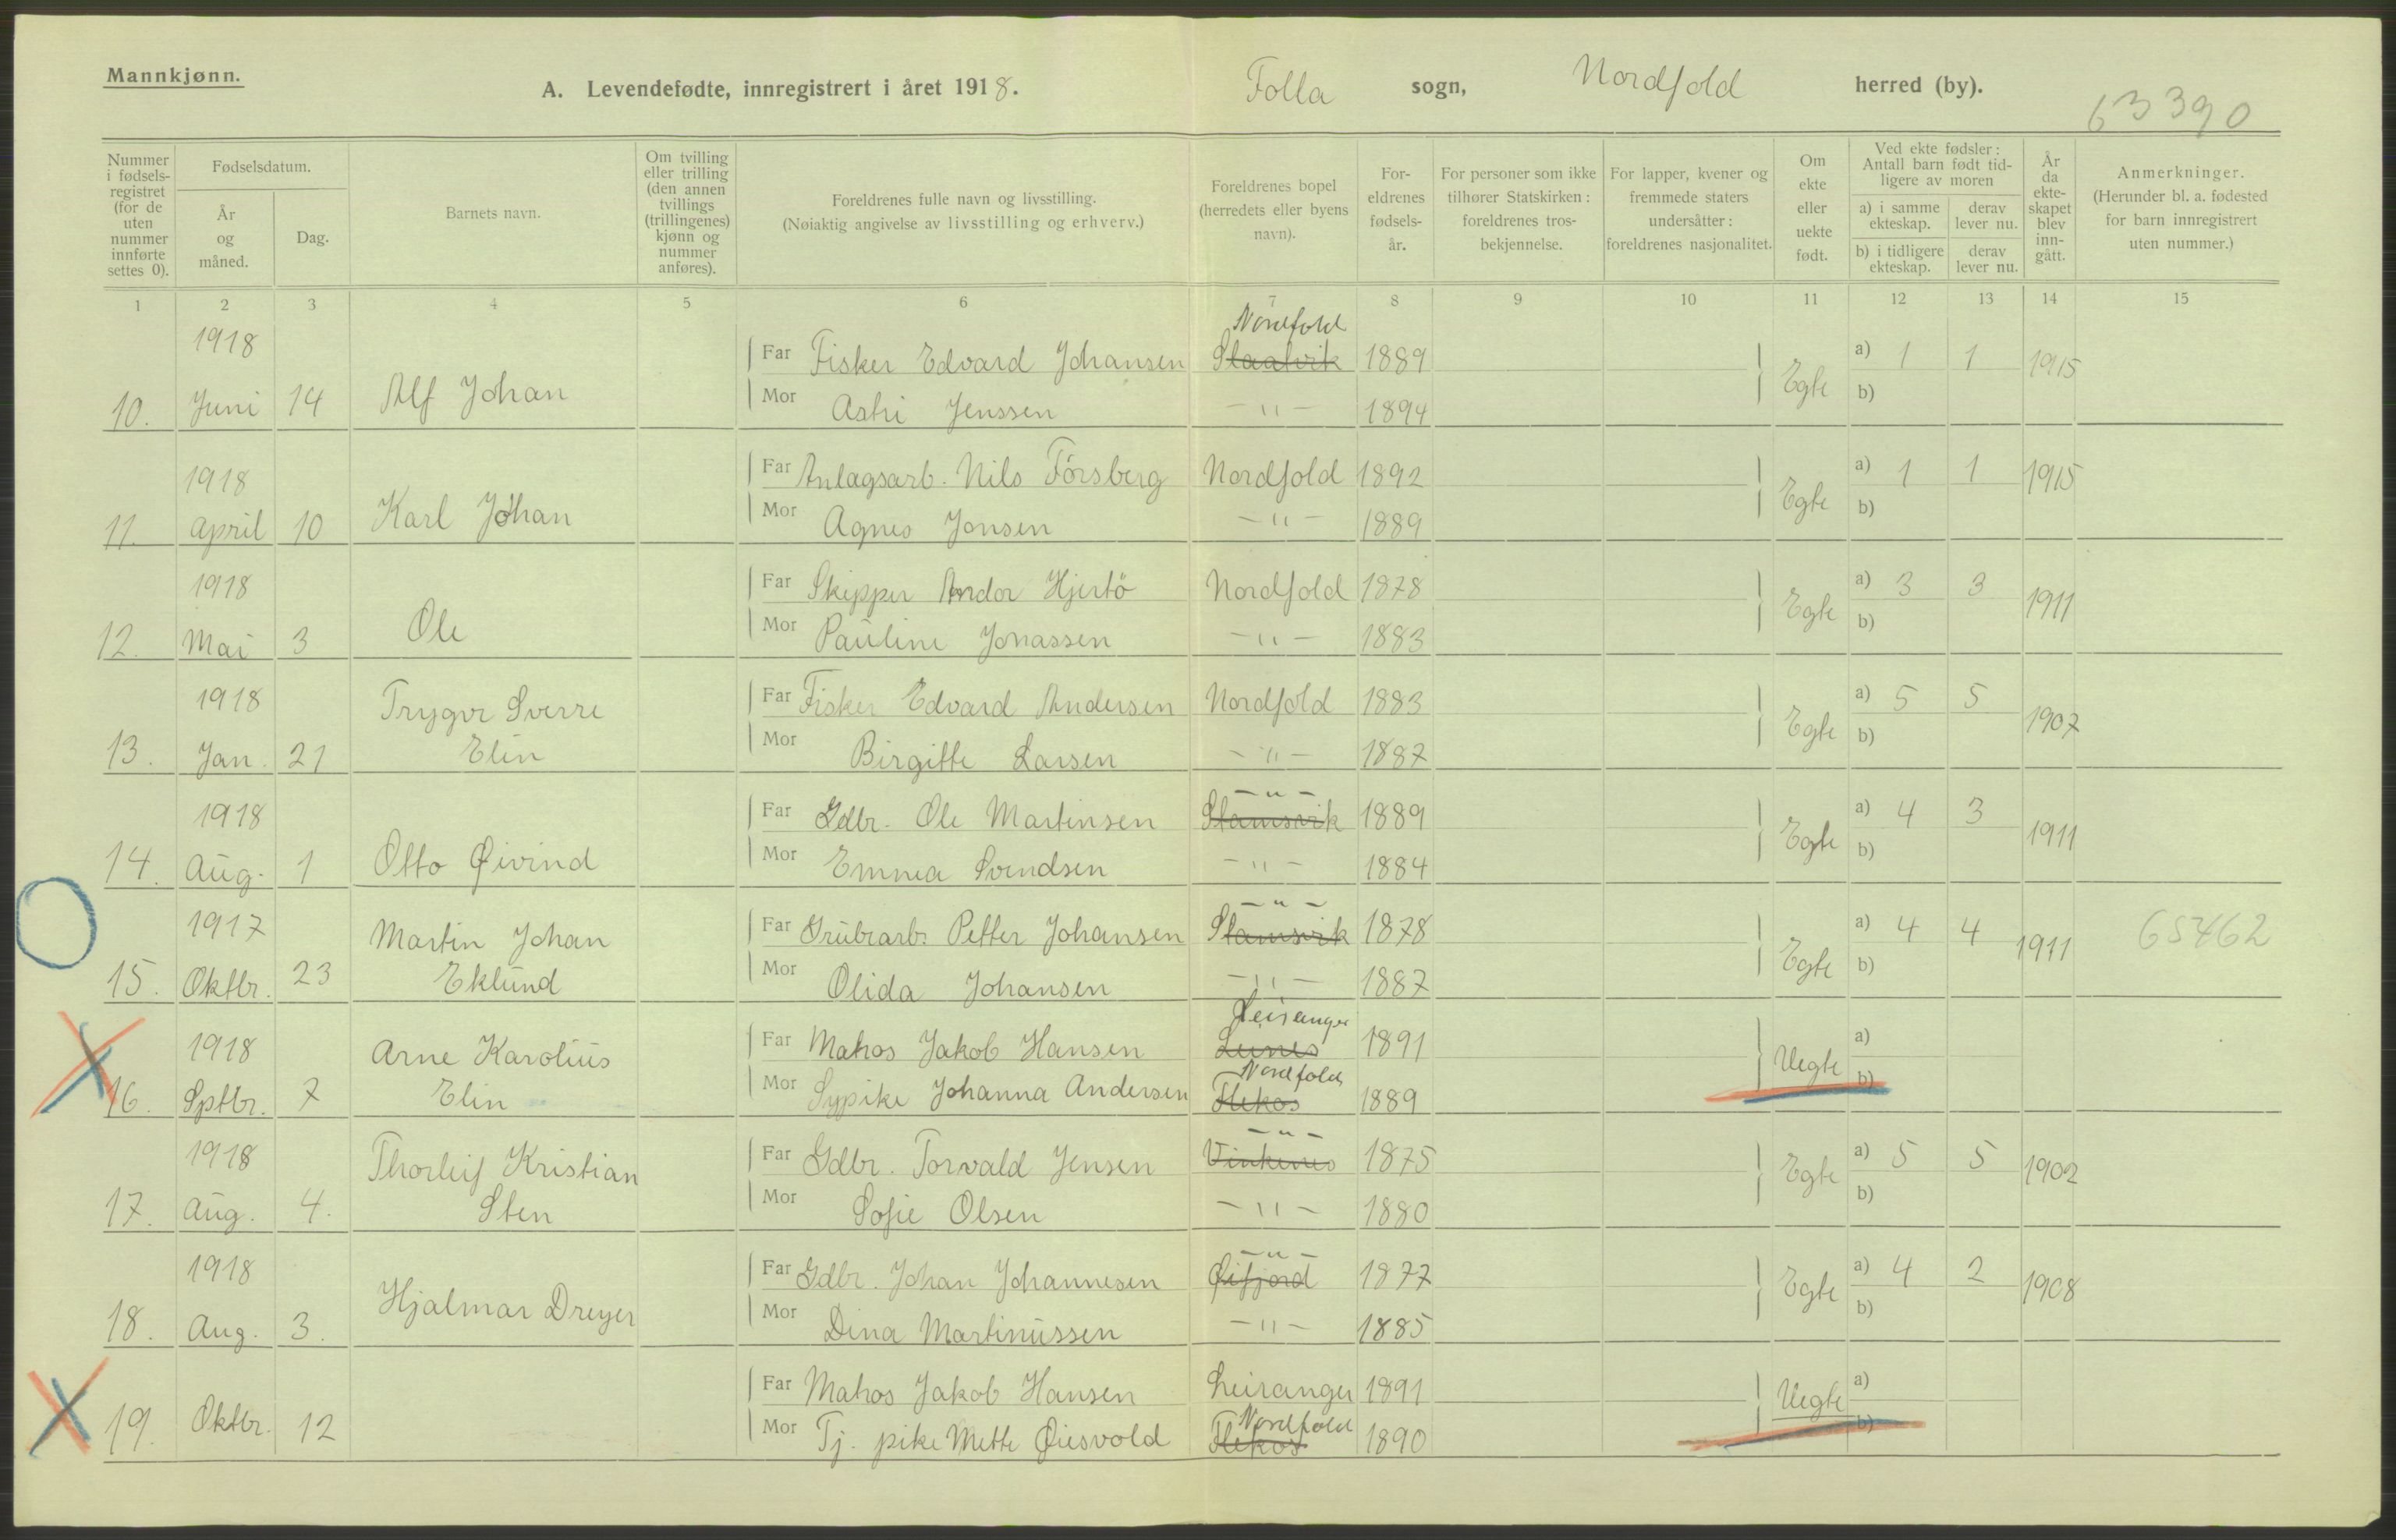 Mannkjønn.
A. Levendefødte, innregistrert i året 1918. Folla sogn, Nordfold herred (by).
63390
Nummer i fødselsregistret (for de uten nummer innførte settes 0).
Fødselsdatum.
År og måned.
Dag.
Barnets navn.
Om tvilling eller trilling (den annen tvillings (trillingenes) kjønn og nummer anføres).
Foreldrenes fulle navn og livsstilling.
(Nøiaktig angivelse av livsstilling og erhverv.)
Foreldrenes bopel (herredets eller byens navn).
Foreldrenes fødselsår.
For personer som ikke tilhører Statskirken: foreldrenes trosbekjennelse.
For lapper, kvener og fremmede staters undersåtter: foreldrenes nasjonalitet.
Om ekte eller uekte født.
Ved ekte fødsler: Antall barn født tidligere av moren
a) i samme ekteskap.
derav lever nu.
b) i tidligere ekteskap.
derav lever nu.
År da ekteskapet blev inngått.
Anmerkninger.
(Herunder bl. a. fødested for barn innregistrert uten nummer.)
1 2 3 4 5 6 7 8 9 10 11 12 13 14 15
1918 Nordfold
Far Fisker Edvard Johansen 1889 a) 1 1 1915
10. Juni 14 Alf Johan Mor Jenssen -"- 1894 Egte b)
1918 Far Anlagsarb. Nils Forsberg Nordfold 1892 a) 1 1 1915
11. April 10 Karl Johan Mor Agnes Jonsen -"- 1889 Egte b)
1918 Far Skipper Andor Hjertö Nordfold 1878 a) 3 3 1911
12. Mai 3 Ole Mor Pauline Jonassen -"- 1883 Egte b)
1918 Trygve Sverre Far Fisker Edvard Andersen Nordfold 1883 a) 5 5 1907
13. Jan. 21 Elin Mor Birgitte Larsen -"- 1887 Egte b)
-"-
1918 Far Gdbr. Ole Martinsen Stamsvik 1889 a) 4 3 1911
14. Aug. 1 Otto Øivind Mor Emma Svendsen -"- 1884 Egte b)
-"-
1917 Martin Johan Far Grubearb. Petter Johansen Stamsvik 1878 a) 4 4 1911 65462
15. Oktbr. 23 Eklund Mor Olida Johansen -"- 1887 Egte b)
Leiranger
1918 Arne Karolius Far Matros Jakob Hansen Leines 1891 Uegte a)
Nordfold
16. Sptbr. 7 Elin Mor Sypike Johanna Andersen 1889 b)
-"-
1918 Thorleif Kristian Far Gdbr. Torvald Jensen Vinkenes 1875 a) 5 5 1902
17. Aug. 4. Sten Mor Sofie Olsen -"- 1880 Egte b)
-"-
1918 Far Gdbr. Johan Johannesen Øifjord 1877 a) 4 2 1908
18. Aug. 3. Hjalmar Dreyer Mor Dina Martinussen -"- 1885 Egte b)
Far Matros Jakob Hansen Leiranger 1891 Uegte a)
Nordfold
19. Oktbr. 12 Mor Tj. pike Mette 1890 b)